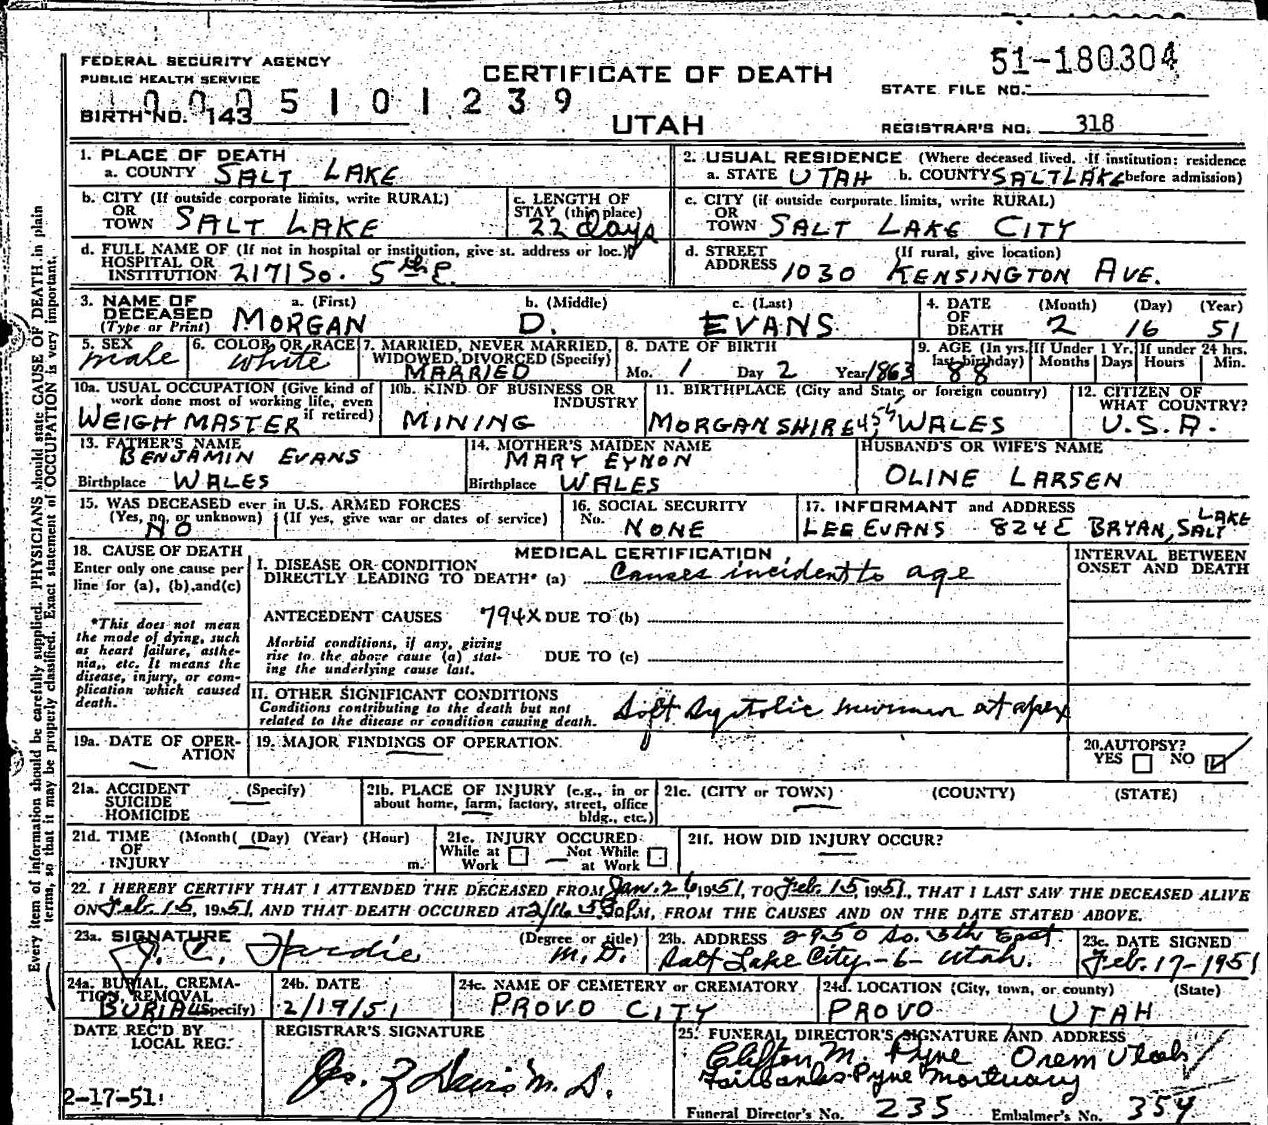 FEDERAL SECURITY AGENCY
PUBLIC HEALTH SERVICE
CERTIFICATE OF DEATH
51-180304
STATE FILE NO.
10005101239
BIRTH NO. 143
UTAH
REGISTRAR'S NO. 318
1. PLACE OF DEATH
a. COUNTY SALT LAKE
2. USUAL RESIDENCE (Where deceased lived. If institution: residence before admission)
a. STATE UTAH b. COUNTY SALT LAKE
b. CITY (If outside corporate limits, write RURAL)
OR
TOWN SALT LAKE
c. LENGTH OF
STAY (this place)
22 days
c. CITY (if outside corporate limits, write RURAL)
OR
TOWN SALT LAKE CITY
d. FULL NAME OF (If not in hospital or institution, give st. address or loc.)
HOSPITAL OR
INSTITUTION 2171 So. 5th E.
d. STREET (If rural, give location)
ADDRESS 1030 KENSINGTON AVE.
3. NAME OF
DECEASED
(Type or Print)
a. (First) b. (Middle) c. (Last)
MORGAN D. EVANS
4. DATE (Month) (Day) (Year)
OF
DEATH 2 16 51
5. SEX
male
6. COLOR OR RACE
white
7. MARRIED, NEVER MARRIED,
WIDOWED, DIVORCED (Specify)
MARRIED
8. DATE OF BIRTH
Mo. 1 Day 2 Year 1863
9. AGE (In yrs. last birthday) 88
If Under 1 Yr. Months Days
If under 24 hrs. Hours Min.
10a. USUAL OCCUPATION (Give kind of
work done most of working life, even
if retired)
WEIGH MASTER
10b. KIND OF BUSINESS OR
INDUSTRY
MINING
11. BIRTHPLACE (City and State or foreign country)
MORGANSHIRE WALES
12. CITIZEN OF
WHAT COUNTRY?
U.S.A.
13. FATHER'S NAME
BENJAMIN EVANS
Birthplace WALES
14. MOTHER'S MAIDEN NAME
MARY EYNON
Birthplace WALES
HUSBAND'S OR WIFE'S NAME
OLINE LARSEN
15. WAS DECEASED ever in U.S. ARMED FORCES
(Yes, no, or unknown) (If yes, give war or dates of service)
NO
16. SOCIAL SECURITY
No. NONE
17. INFORMANT and ADDRESS
LEE EVANS 824 E BRYAN, SALT LAKE
18. CAUSE OF DEATH
Enter only one cause per
line for (a), (b), and (c)
*This does not mean
the mode of dying, such
as heart failure, asthe-
nia,, etc. It means the
disease, injury, or com-
plication which caused
death.
MEDICAL CERTIFICATION
I. DISEASE OR CONDITION
DIRECTLY LEADING TO DEATH* (a) Causes incident to age
ANTECEDENT CAUSES 794X DUE TO (b)
Morbid conditions, if any, giving
rise to the above cause (a) stat-
ing the underlying cause last.
DUE TO (c)
II. OTHER SIGNIFICANT CONDITIONS
Conditions contributing to the death but not
related to the disease or condition causing death.
Soft Systolic murmur at apex
INTERVAL BETWEEN
ONSET AND DEATH
19a. DATE OF OPER-
ATION
19. MAJOR FINDINGS OF OPERATION
20. AUTOPSY?
YES NO
21a. ACCIDENT (Specify)
SUICIDE
HOMICIDE
21b. PLACE OF INJURY (e.g., in or
about home, farm, factory, street, office
bldg., etc.)
21c. (CITY or TOWN) (COUNTY) (STATE)
21d. TIME (Month) (Day) (Year) (Hour)
OF
INJURY m.
21e. INJURY OCCURED
While at Work Not While at Work
21f. HOW DID INJURY OCCUR?
22. I HEREBY CERTIFY THAT I ATTENDED THE DECEASED FROM Jan. 26 1951, TO Feb. 15 1951, THAT I LAST SAW THE DECEASED ALIVE
ON Feb. 15, 1951, AND THAT DEATH OCCURED AT 2/16 P.M, FROM THE CAUSES AND ON THE DATE STATED ABOVE.
23a. SIGNATURE (Degree or title)
J. C. Hardie M.D.
23b. ADDRESS 2950 So. 5th East
Salt Lake City-6-Utah.
23c. DATE SIGNED
Feb. 17-1951
24a. BURIAL, CREMA-
TION, REMOVAL
(Specify)
BURIAL
24b. DATE
2/19/51
24c. NAME OF CEMETERY or CREMATORY
PROVO CITY
24d. LOCATION (City, town, or county) (State)
PROVO UTAH
DATE REC'D BY
LOCAL REG.
2-17-51
REGISTRAR'S SIGNATURE
Jos. Z Davis M.D.
25. FUNERAL DIRECTOR'S SIGNATURE AND ADDRESS
Clifton M. Pyne Orem Utah
Fairbanks-Pyne Mortuary
Funeral Director's No. 235 Embalmer's No. 354
Every item of information should be carefully supplied. PHYSICIANS should state CAUSE OF DEATH in plain
terms, so that it may be properly classified. Exact statement of OCCUPATION is very important.